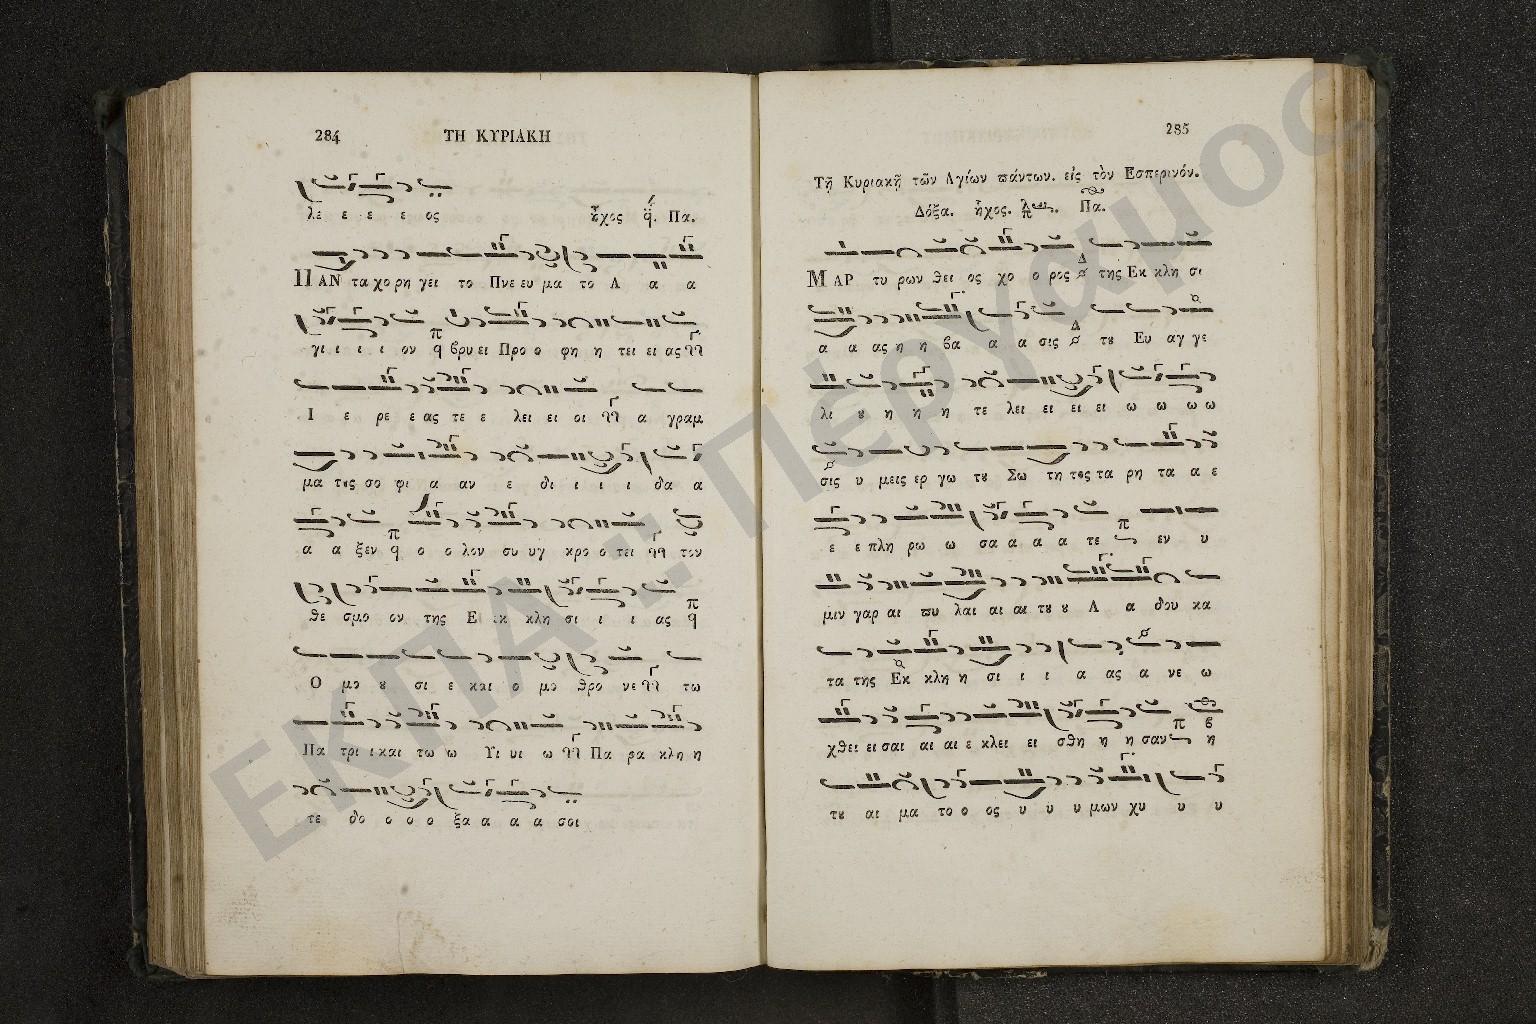 284 ΤΗ ΚΥΡΙΑΚΗ
λε ε ε ε ος ἦχος q̈. Πα.
ΠΑΝ τα χο ρη γει το Πνε ευ μα το Α α α
γι ι ι ι ον q βρυ ει Προ ο φη η τει ει ας
Ι ε ρε ε ας τε ε λει ει οι α γραμ
μα τȣς σο φι α αν ε δι ι ι ι δα α
α α ξεν q ο ο λον συ υγ κρο ο τει τον
θε σμο ον της Ε εκ κλη σι ι ι ας q
Ο μο ȣ σι ε και ο μο θρο νε τω
Πα τρι ι και τω ω Υι υι ω Πα ρα κλη η
τε δο ο ο ο ξα α α α σοι
285
Τῇ Κυριακῇ τῶν Αγίων ϖάντων. εἰς τὸν Εσπερινόν.
Δόξα. ἦχος. Πα.
ΜΑΡ τυ ρων θει ος χο ο ρος της Εκ κλη σι
α α ας η η βα α α σις τȣ Ευ αγ γε
λι ȣ η η η τε λει ει ει ει ω ω ω ω
σις υ μεις ερ γω τȣ Σω τη τος τα ρη τα α ε
ε ε πλη ρω ω σα α α α τε εν υ
μιν γαρ αι ϖυ λαι αι αι τȣ ȣ Α α δου κα
τα της Εκ κλη η σι ι ι α ας α νε ω
χθει ει σαι αι αι ε κλει ει σθη η η σαν η
τȣ αι μα το ο ος υ υ υ μων χυ υ υ
ΕΚΠΑ :: Πέργαμος